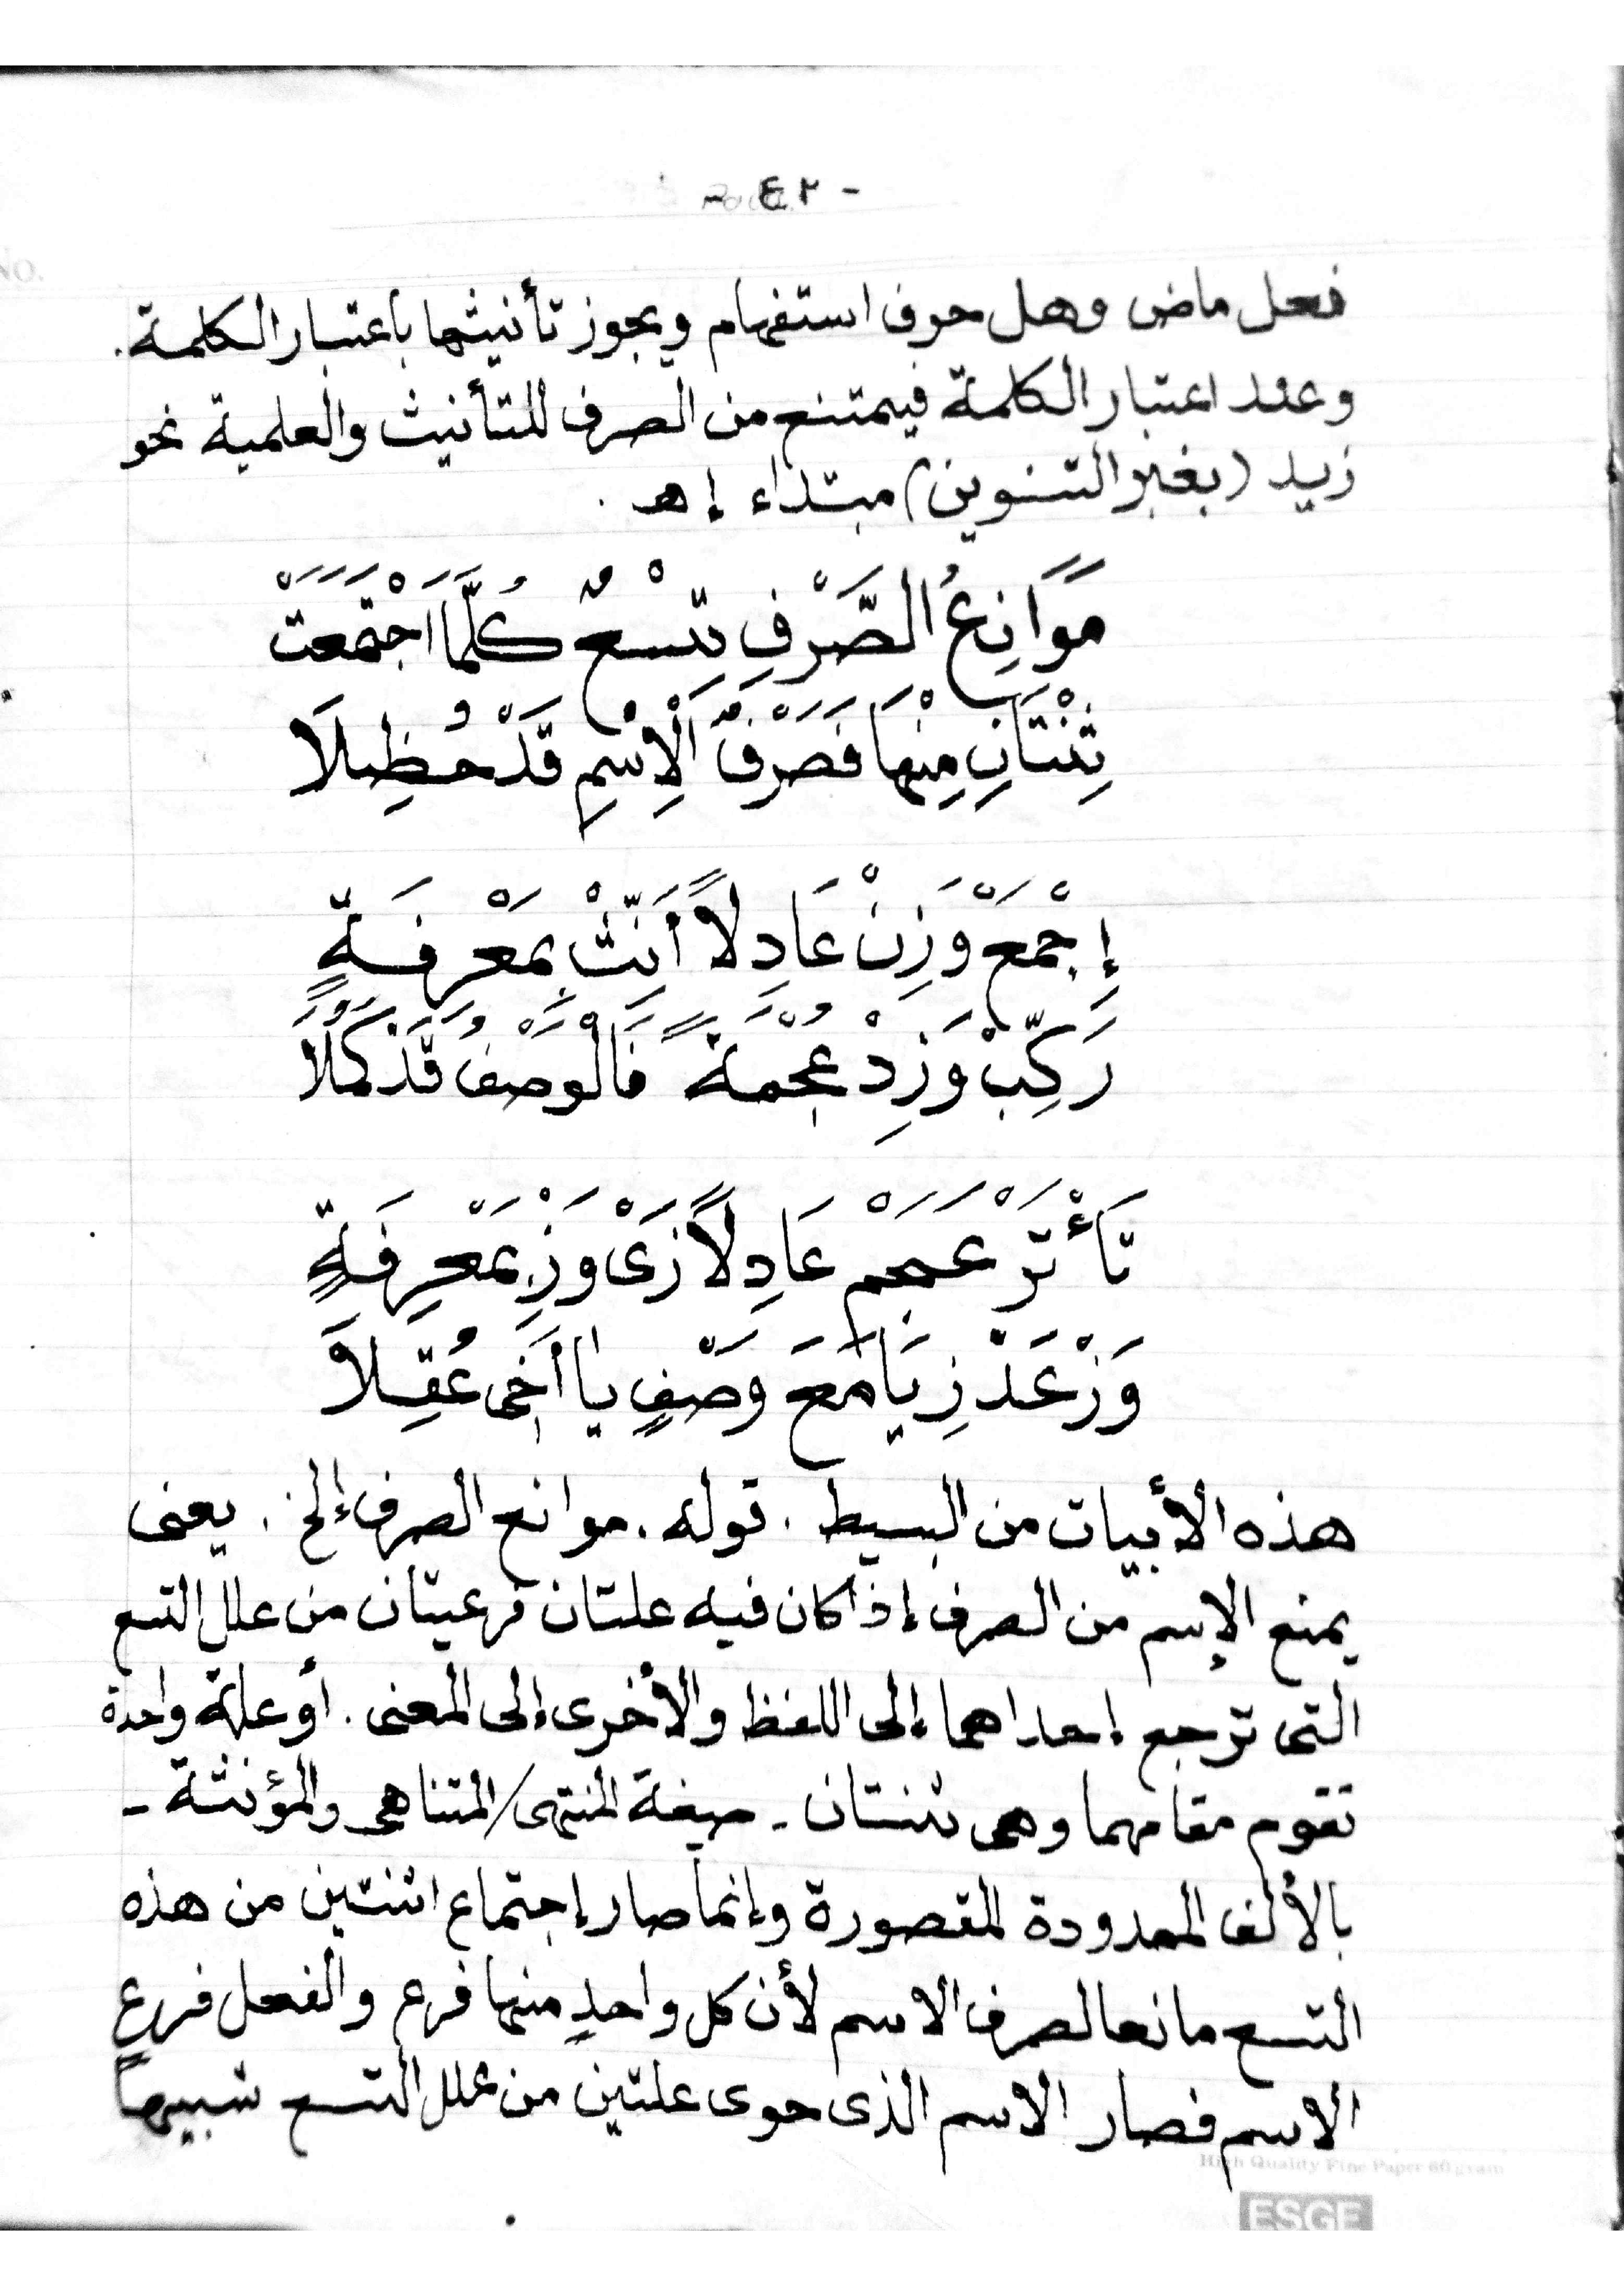 - ٤٢ -
No.
فعل ماض وهل حرف استفهام ويجوز تأنيثها باعتبار الكلمة.
وعند اعتبار الكلمة فيمتنع من الصرف للتأنيث والعلمية نحو
زيد (بغير التنوين) مبتداء إهـ .
مَوَانِعُ الصَّرْفِ تِسْعٌ كُلَّمَا اجْتَمَعَتْ
ثِنْتَانِ مِنْهَا فَصَرْفُ الْاِسْمِ قَدْ حُظِلَا
إِجْمَعْ وَزِنْ عَادِلاً أَنِّثْ بِمَعْرِفَةٍ
رَكِّبْ وَزِدْ عُجْمَةً فَالْوَصْفُ قَدْ كَمُلَا
تَأْ تَرْ عَجَمْ عَادِلاً زَىْ وَزْ بِمَعْرِفَةٍ
وَزْ عَدْ زِيَا مَعَ وَصْفٍ يَا أَخِى عُقِلاَ
هذه الأبيات من البسيط . قوله . موانع الصرف إلخ . يعنى
يمنع الإسم من الصرف إذا كان فيه علتان فرعيتان من علل التسع
التى ترجع إحداهما إلى اللفظ والأخرى إلى المعنى . أو علة واحدة
تقوم مقامهما وهى ثنتان - صيغة المنتهى/المتناهى والمؤنثة -
بالألف الممدودة المقصورة وإنما صار إجتماع اثنتين من هذه
التسع مانعا لصرف الاسم لأن كل واحدٍ منها فرع والفعل فرع
الاسم فصار الاسم الذى حوى علتين من علل التسع شبيهاً
High Quality Fine Paper 60 gram
ESGE